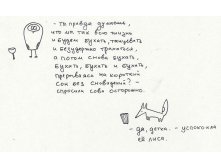 - ты правда думаешь,
что мы так всю жизнь
и будем бухать, танцевать
и безудержно трахаться,
а потом снова бухать,
бухать, бухать и бухать,
прерываясь на короткий
сон без сновидений? -
спросила сова осторожно.
- да, детка. - успокоила
её лиса.